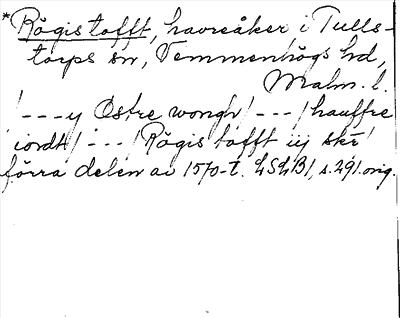 *Rågis tofft, havreåker i Tulls-
torps sn, Vemmenhögs hd,
Malm. l.
/---y Östre wongh/---/hauffre
iordt/---/Rågis tofft iij skr̄/
förra delen av 1570-t. LSLB1, s. 291. orig.